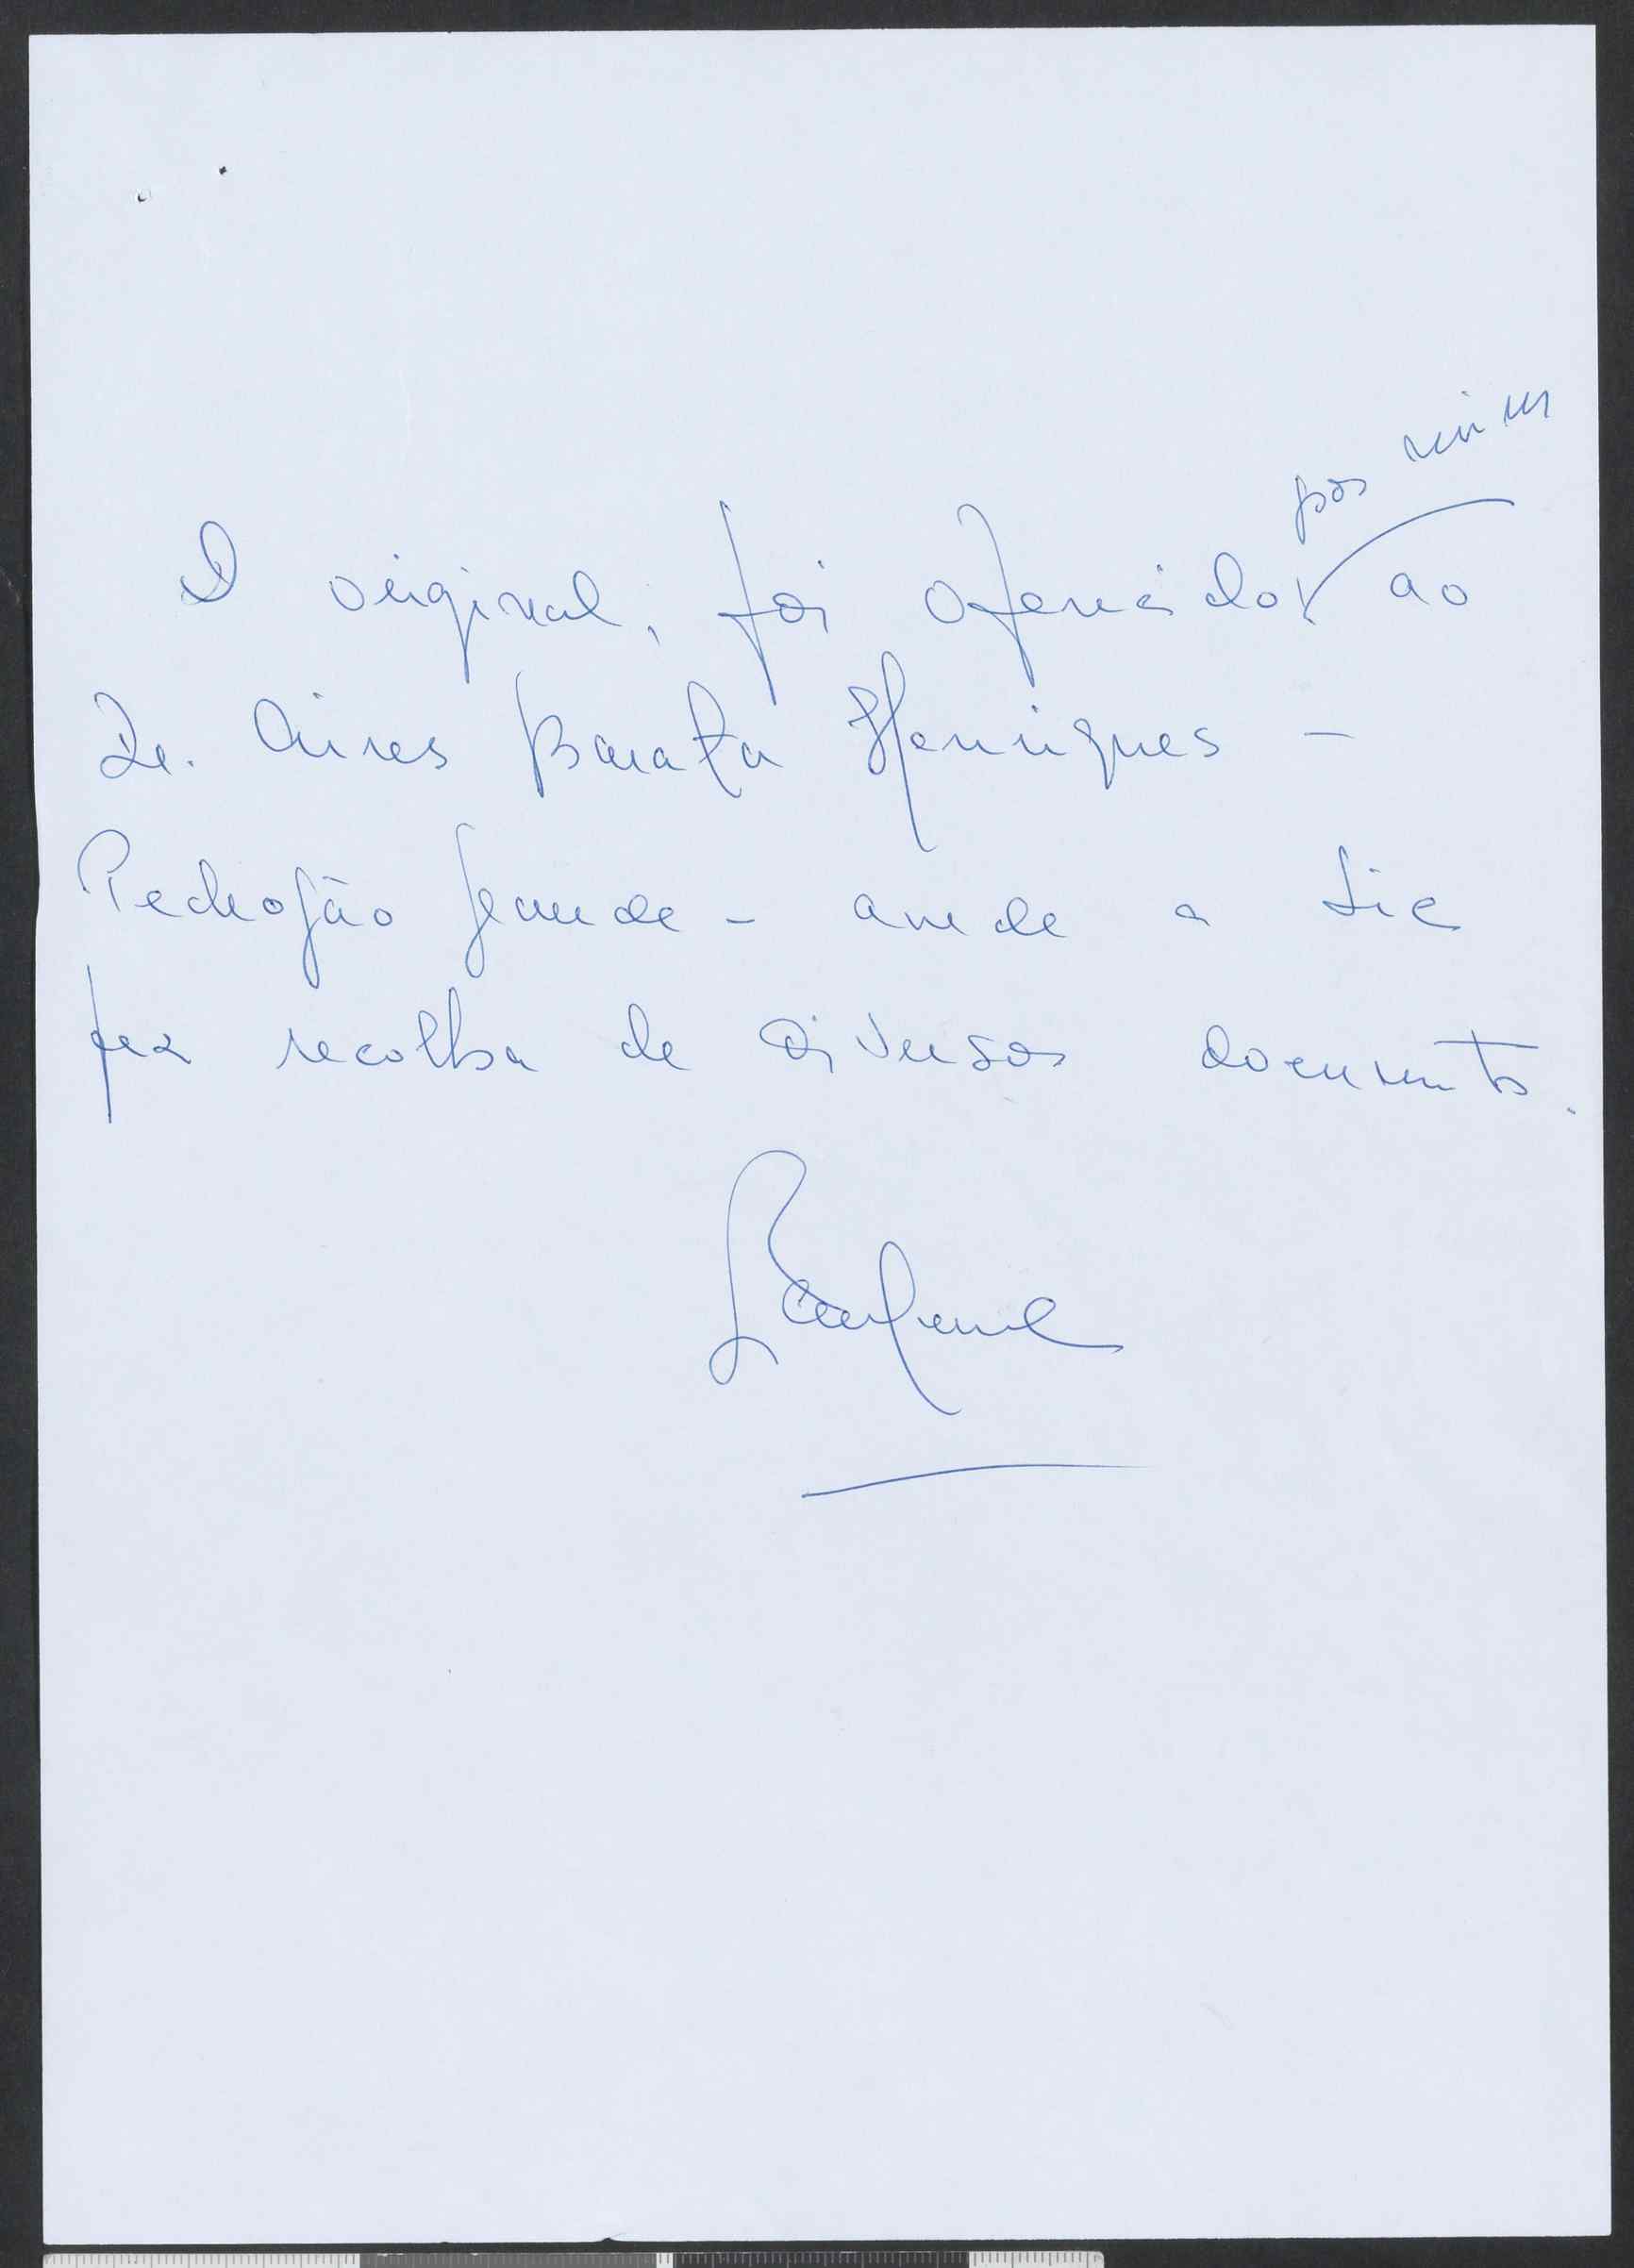 por mim
O original, foi oferecido ao
Dr. Aires Barata Henriques -
Pedrogão Grande - onde a Sic
fez recolha de diversos documentos.